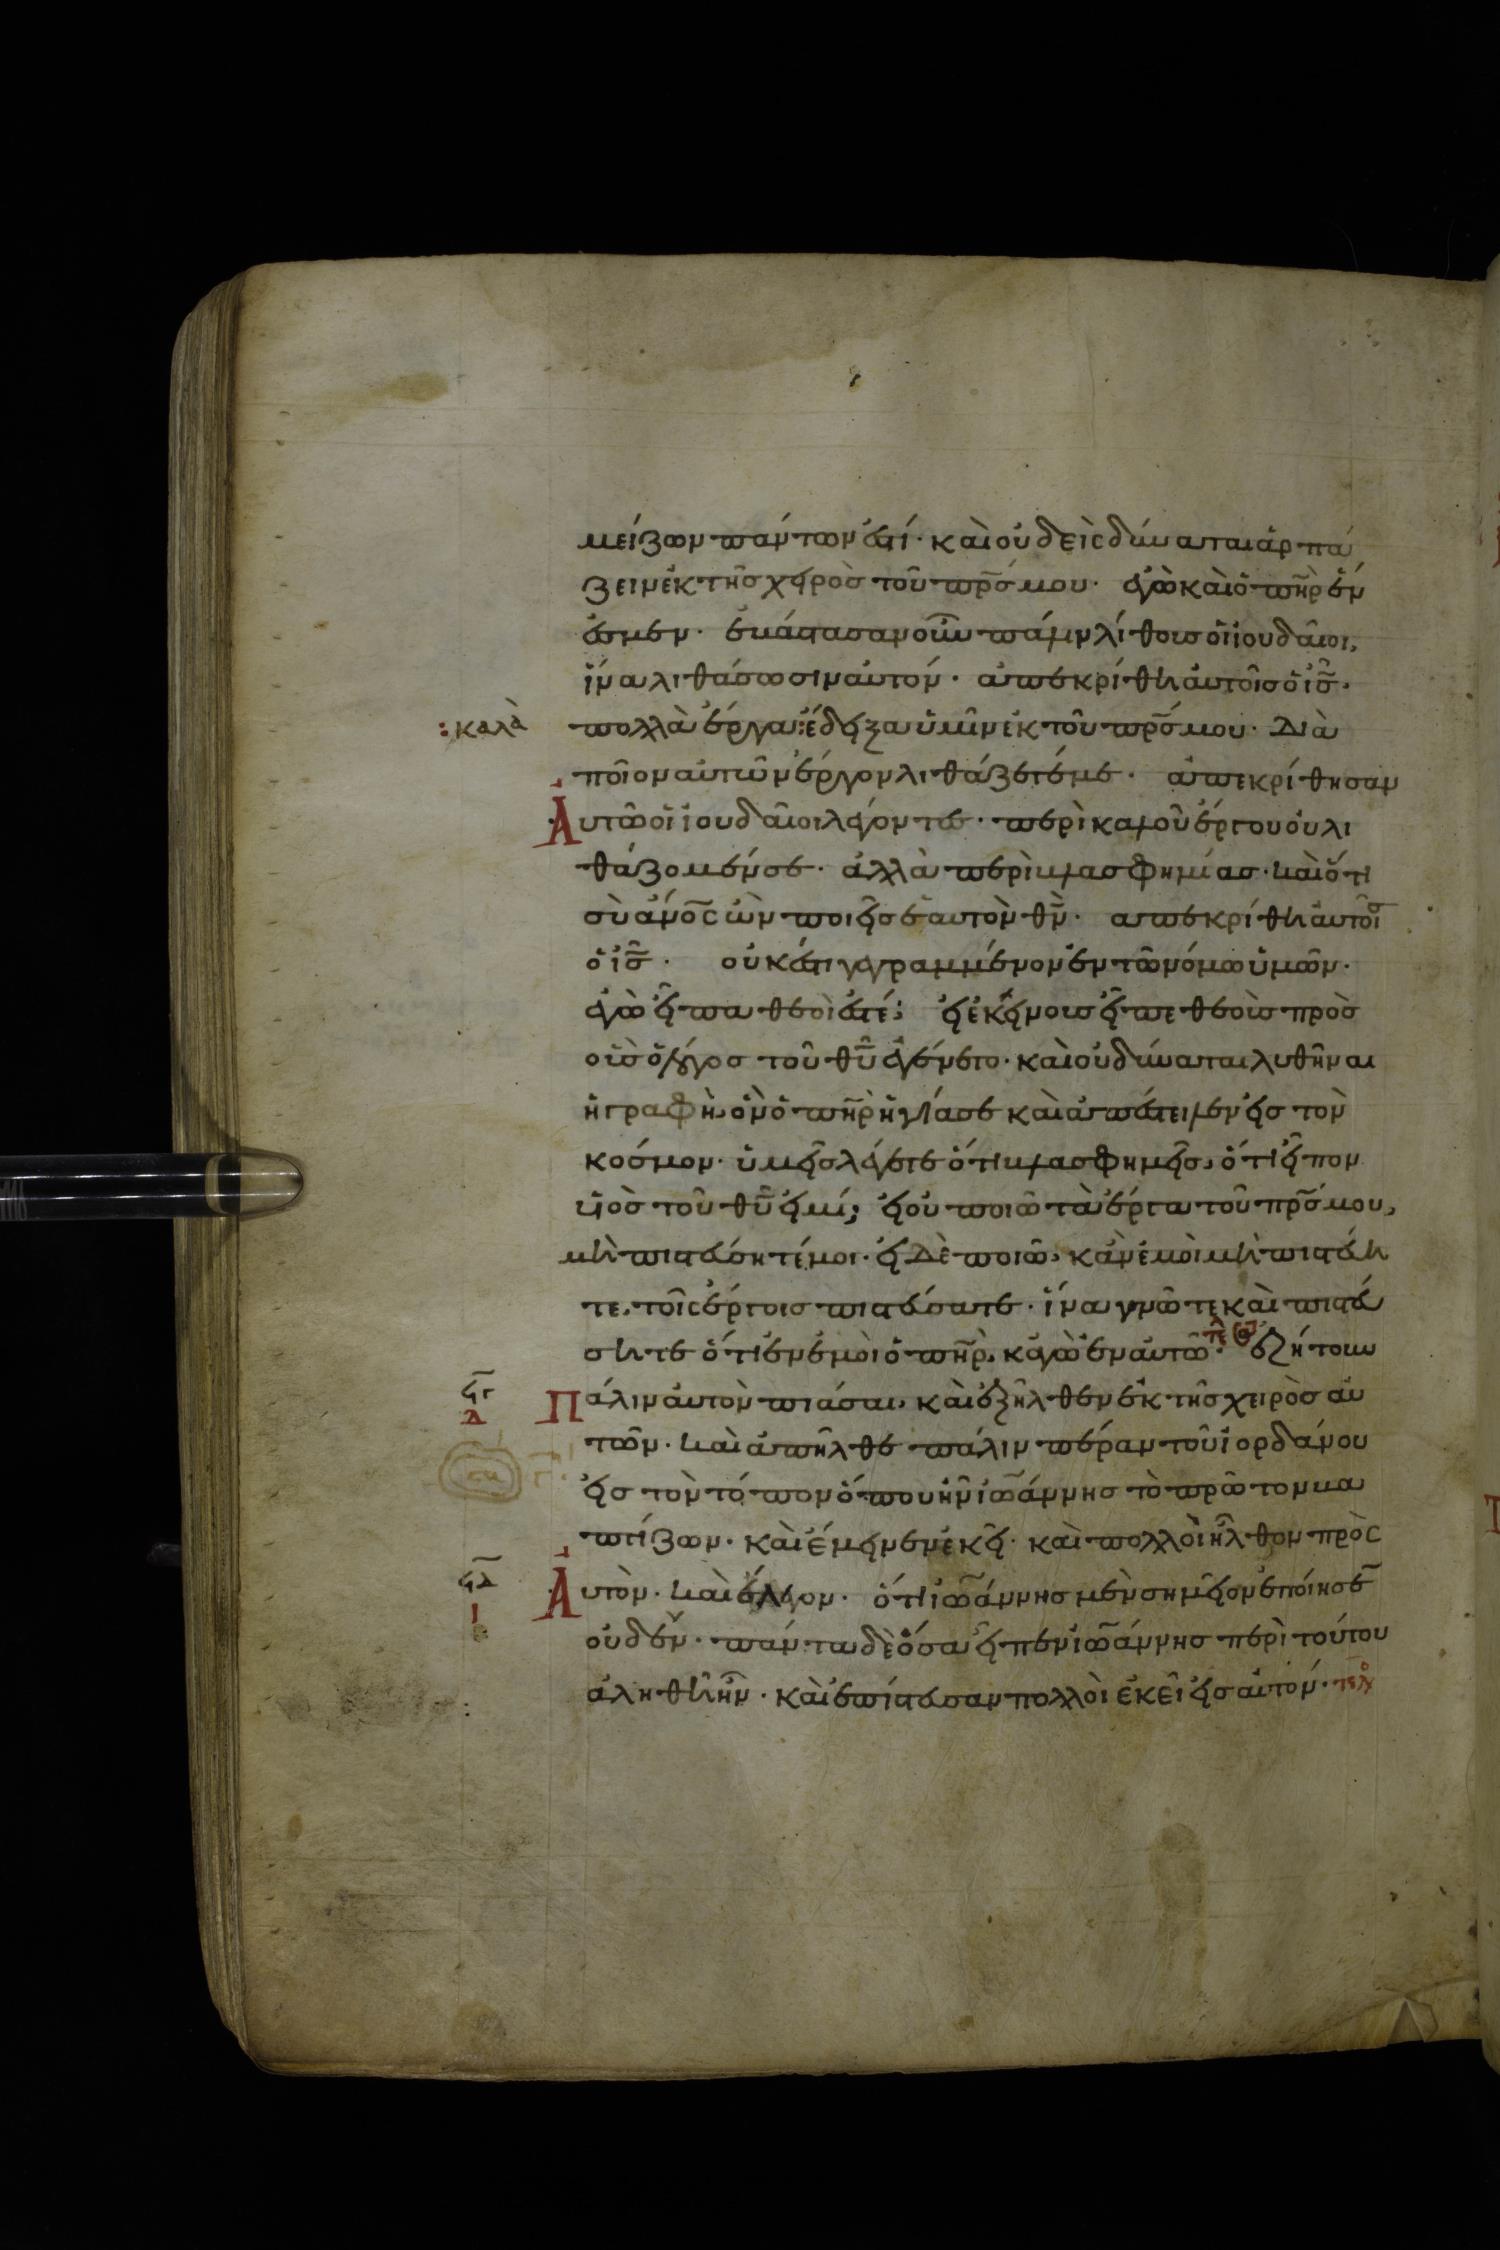 μείζων πάντων ἐστί· καὶ οὐδεὶς δύναται ἁρπά
ζειν ἐκ τῆς χειρὸς τοῦ πρ̅ς μου· ἐγὼ καὶ ὁ πη̅ρ ἕν
ἐσμεν· ἐβάστασαν οὖν πάλιν λίθους οἱ ἰουδαῖοι,
ἵνα λιθάσωσιν αὐτόν· ἀπεκρίθη αὐτοῖς ὁ ι̅ς·
:καλὰ
πολλὰ ἔργα: ἔδειξα ὑμῖν ἐκ τοῦ πρ̅ς μου· Διὰ
ποῖον αὐτῶν ἔργον λιθάζετέ με· ἀπεκρίθησαν
Αὐτῶ οἱ ἰουδαῖοι λέγοντες· περὶ καλοῦ ἔργου οὐ λι
θάζομέν σε· ἀλλὰ περὶ βλασφημίας· καὶ ὅτι
σὺ ἀν̅ο̅ς ὢν ποιεῖς ἑαυτὸν θ̅ν· ἀπεκρίθη αὐτοῖς
ὁ ι̅ς· οὐκ ἔστι γεγραμμένον ἐν τῶ νόμω ὑμῶν·
ἐγὼ εἶπα θεοί ἐστέ; εἰ ἐκείνους εἶπε θεοὺς πρὸς
οὓς ὁ λόγος τοῦ θ̅υ ἐγένετο· καὶ οὐ δύναται λυθῆναι
ἡ γραφή, ὃν ὁ πη̅ρ ἡγίασε καὶ ἀπέστειλεν εἰς τὸν
κόσμον· ὑμεῖς λέγετε ὅτι βλασφημεῖς, ὅτι εἶπον
υἱὸς τοῦ θ̅υ εἰμί; εἰ οὐ ποιῶ τὰ ἔργα τοῦ πρ̅ς μου,
μὴ πιστεύσητέ μοι· εἰ Δὲ ποιῶ, κἂν ἐμοὶ μὴ πιστεύη
τε, τοῖς ἔργοις πιστεύσατε· ἵνα γνῶτε καὶ πιστεύ
σητε ὅτι ἐν ἐμοὶ ὁ πη̅ρ, κἀγὼ ἐν αὐτῶ· ἐζήτουν
ϟγ
Δ
Πάλιν αὐτὸν πιάσαι, καὶ ἐξῆλθεν ἐκ τῆς χειρὸς αὐ
τῶν· καὶ ἀπῆλθε πάλιν πέραν τοῦ ἰορδάνου
εἰς τὸν τόπον ὅπου ἦν ἰω̅άννης τὸ πρῶτον βα
πτίζων· καὶ ἔμεινεν ἐκεῖ· καὶ πολλοὶ ἦλθον πρὸς
ϟδ
Ι
Αὐτὸν· καὶ ἔλεγον· ὅτι ἰω̅άννης μὲν σημεῖον ἐποίησε̅
οὐδέν· πάντα δὲ ὅσα εἶπεν ἰω̅άννης περὶ τούτου
ἀληθῆ ἦν· καὶ ἐπίστευσαν πολλοὶ ἐκεῖ εἰς αὐτόν· τελ